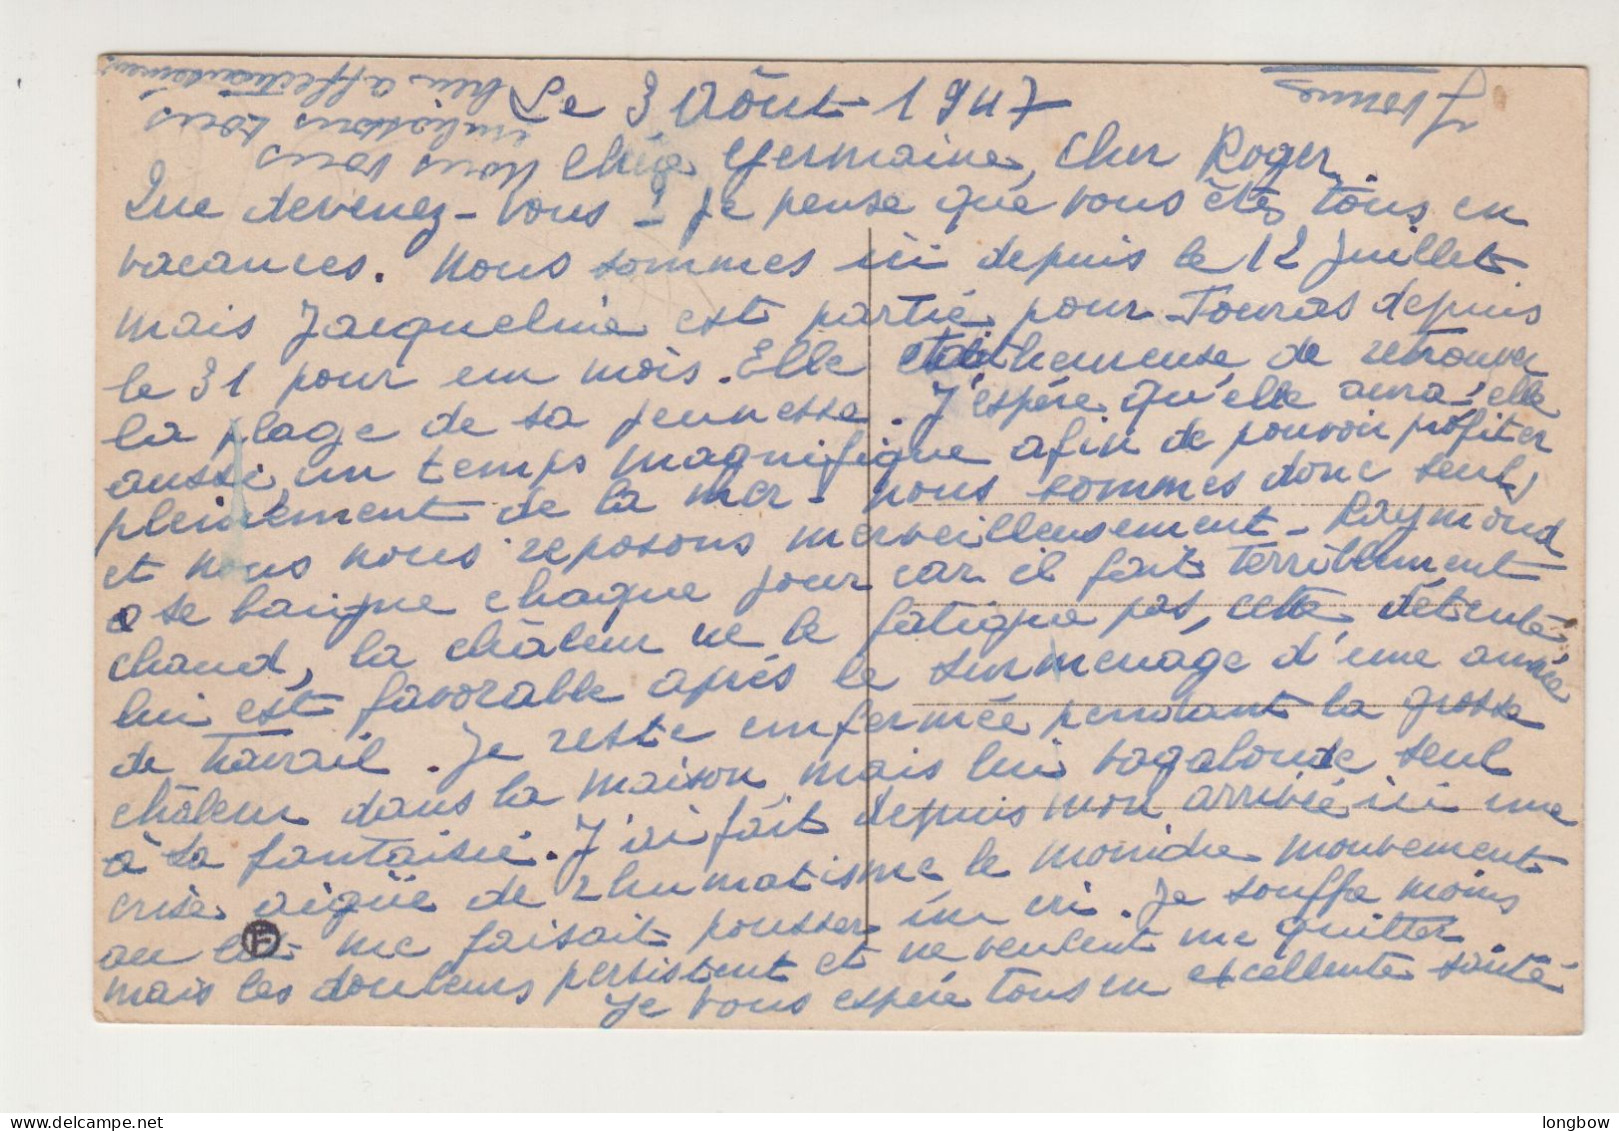 Le 3 Août 1947
Chère Germaine, Cher Roger,
Que devenez-vous ? Je pense que vous êtes tous en
vacances. Nous sommes ici depuis le 12 Juillet
mais Jacqueline est partie pour Fouras depuis
le 31 pour un mois. Elle était heureuse de retrouver
la plage de sa jeunesse. J'espère qu'elle aura elle
aussi, un temps magnifique afin de pouvoir profiter
pleinement de la mer - nous sommes donc seuls
et nous nous reposons merveilleusement - Raymond
se baigne chaque jour car il fait terriblement
chaud, la châleur ne le fatigue pas, cette détente
lui est favorable après le surmenage d'une année
de travail. Je reste enfermée pendant la grosse
châleur dans la maison, mais lui vagabonde seul
à sa fantaisie. J'ai fait depuis mon arrivée ici une
crise aigüe de rhumatisme le moindre mouvement
au lit me faisait pousser un cri. Je souffre moins
mais les douleurs persistent et ne veulent me quitter
Je vous espère tous en excellente santé
Nous vous
embrassons tous
bien affectueusement
Yvonne
F
longbow